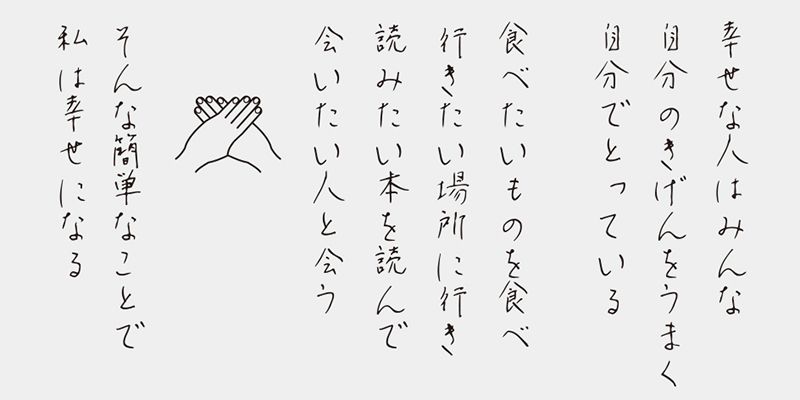 幸せな人はみんな
自分のきげんをうまく
自分でとっている
食べたいものを食べ
行きたい場所に行き
読みたい本を読んで
会いたい人と会う
そんな簡単なことで
私は幸せになる